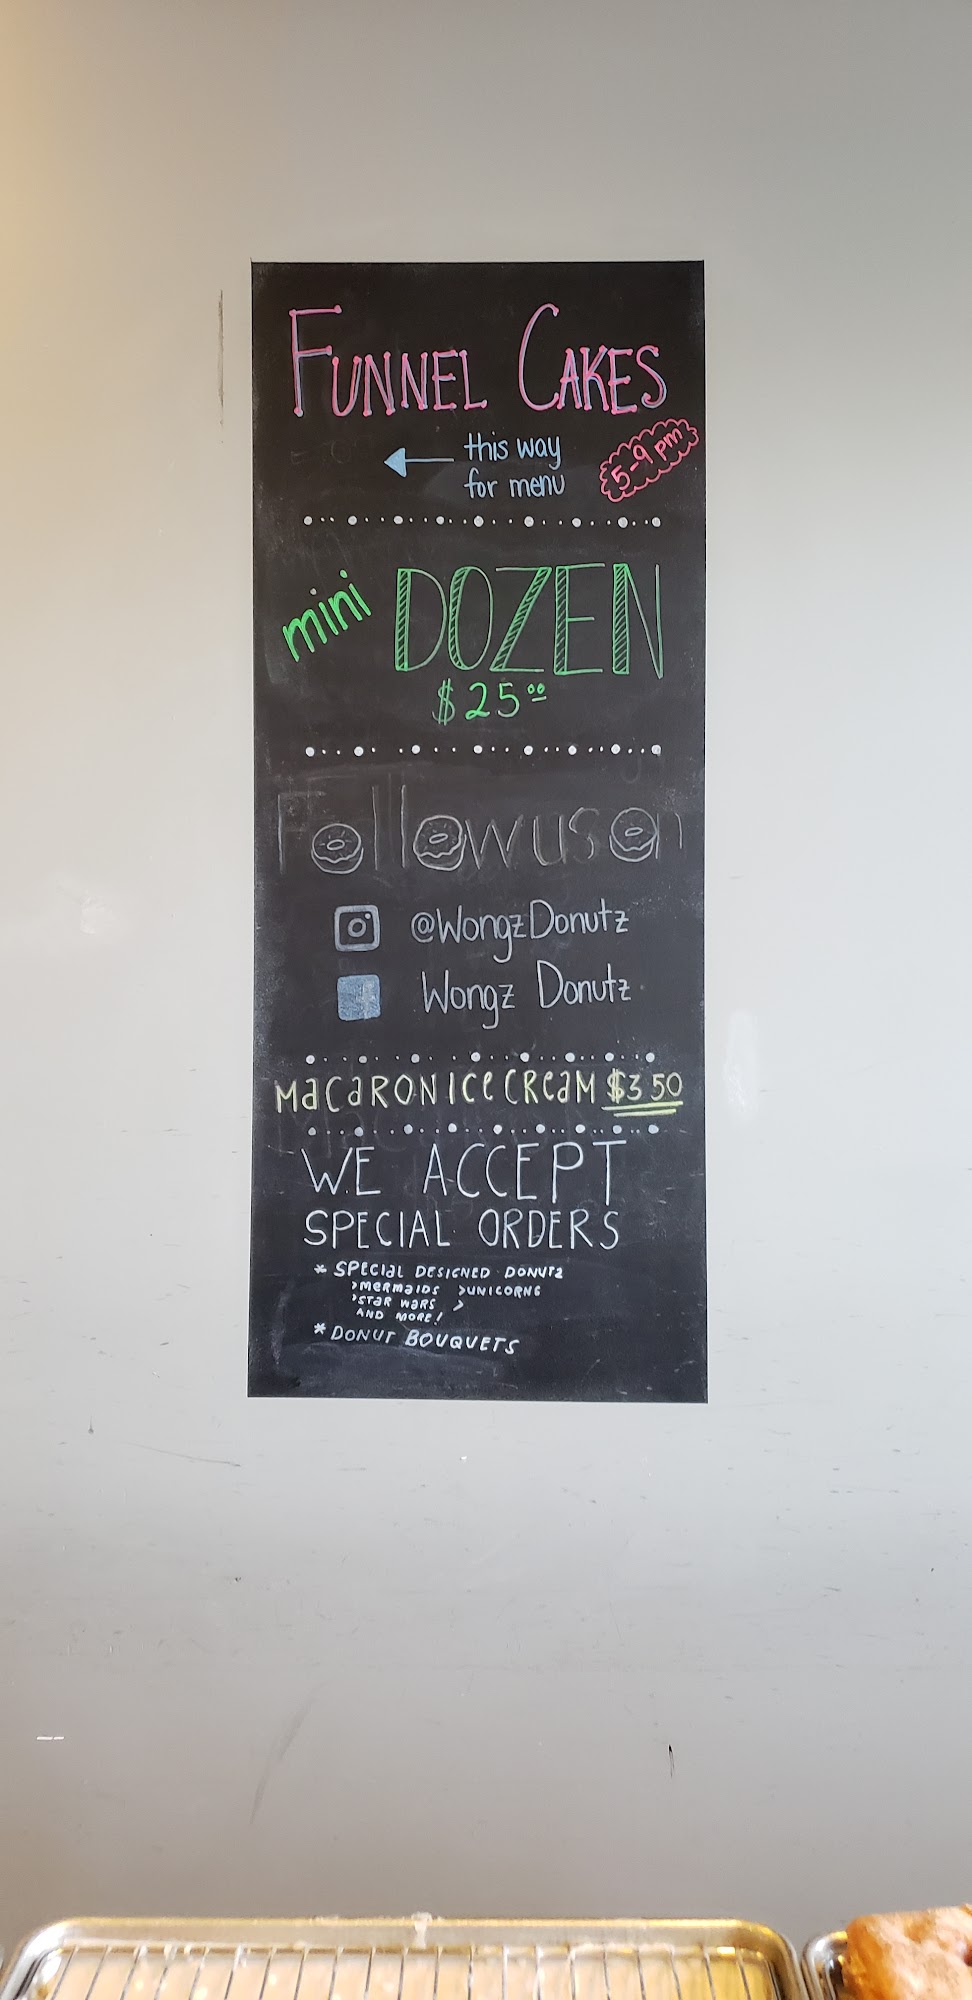 FUNNEL CAKES
this way
for menu
5-9 pm
mini DOZEN
$25.00
Follow us on
@WongzDonutz
Wongz Donutz
MacaRON Ice CReaM $3.50
WE ACCEPT
SPECIAL ORDERS
* SPECIaL DESIGNED DONUTZ
>MERMaIDS >UNICORNS
>STaR WaRS >
AND MORE!
* DONUT BOUQUETS